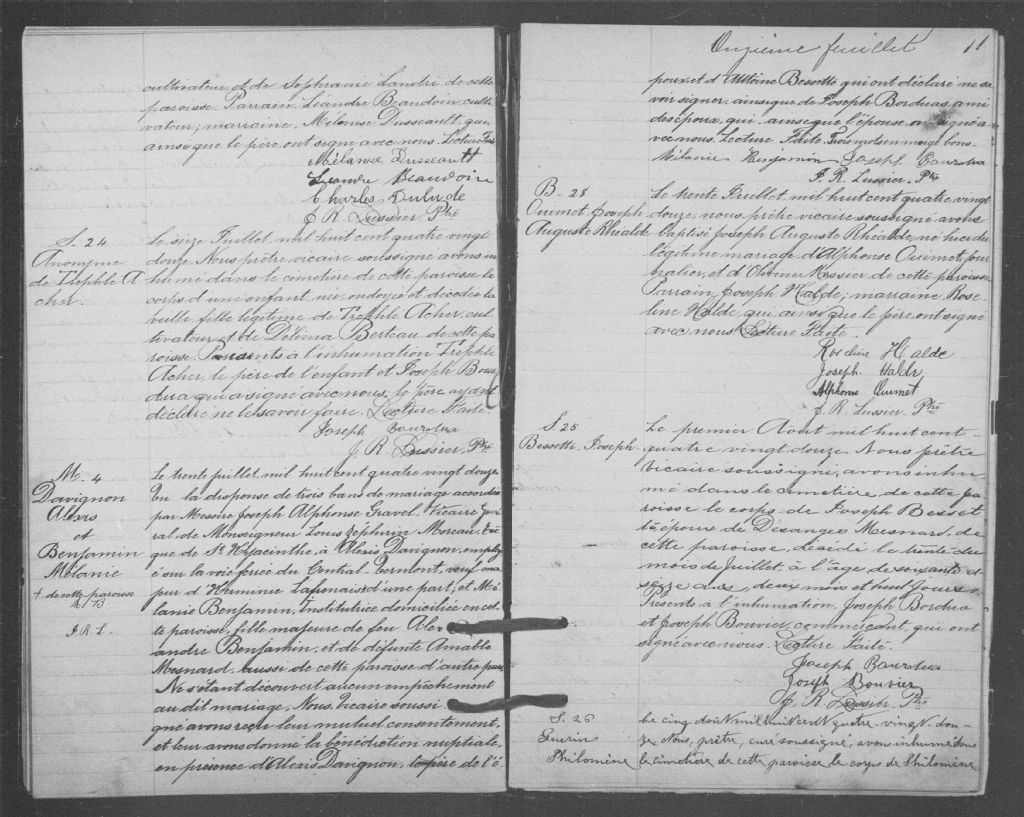 cultivateur et de Sophranie Landré de cette
paroisse. Parrain, Leandre Beaudoin culti
vateur; marraine, Mélanise Dusseault, qui
ainsi que le père, ont signé avec nous. Lecture Faite
Mélanise Dusseault
Leandre Beaudoin
Charles Dulude
J. R. Lussier Ptre
S. 24
Anonyme
de Tréphlé A
cher.
Le seize Juillet, mil huit cent quatre vingt
douze Nous prêtre vicaire soussigné avons in
humé dans le cimetière de cette paroisse le
corps d'une enfant née, ondoyée et décédée la
veille, fille légitime de Trephlé Acher, cul
tivateur et de Délima Berteau de cette pa
roisse. Présents à l'inhumation Trephlé
Acher, le père de l'enfant et Joseph Bour
dua qui a signé avec nous; le père ayant
déclaré ne le savoir faire. Lecture Faite.
Joseph Bourdua
J R Lussier, Ptre
M. 4
Davignon
Alexis
et
Benjamin
Mélanie
+ de cette paroisse
J. R. L.
Le trente juillet, mil huit cent quatre vingt douze
Vu la dispense de trois bans de mariage accordée
par Messire Joseph Alphonse Gravel, Vicaire Géné
ral, de Monseigneur Louis Zéphirin Moreau, Evê
que de St Hyacinthe, à Alexis Davignon, employ
é sur la voie ferrée du Central Vermont, veuf ma
jeur d'Herminie Lafrenais d'une part; et Mé
lanie Benjamin, Institutrice domiciliée en cet
te paroisse, fille majeure de feu Alex
andre Benjamin, et de défunte Amable
Mesnard, aussi de cette paroisse d'autre part
Ne s'étant découvert aucun empêchement
au dit mariage, Nous, Vicaire soussi
gné avons reçu leur mutuel consentement,
et leur avons donné la bénédiction nuptiale,
en présence d'Alexis Davignon, le père de l'é
Onzième feuillet 11
poux et d'Antoine Bessette qui ont déclaré ne sa
voir signer, ainsi que de Joseph Bordua, ami
des époux, qui, ainsi que l'épouse, ont signé a
vec nous. Lecture Faite. Trois mots en marge bons.
Mélanie Benjamin Joseph Bourdua
J. R. Lussier, Ptre
B. 28
Ouimet, Joseph
Auguste Rhéalde
Le trente Juillet, mil huit cent quatre vingt
douze, nous, prêtre vicaire soussigné avons
baptisé Joseph Auguste Rhéalde, né hier du
légitime mariage d'Alphonse Ouimet, jour
nalier, et d'Olivine Messier de cette paroisse
Parrain, Joseph Halde; marraine, Rose
line Halde, qui, ainsi que le père, ont signé
avec nous Lecture Faite.
Roseline Halde
Joseph Halde
Alphonse Ouimet
J. R. Lussier. Ptre
S. 25
Bessette, Joseph
Le premier Aout mil huit cent
quatre vingt douze. Nous prêtre
Vicaire soussigné, avons inhu
mé dans le cimetière de cette pa
roisse le corps de Joseph Besset
te époux de Désanges Mesnard, de
cette paroisse, décédé le trente du
mois de Juillet à l'âge de soixante et
seize ans, deux mois et huit jours.
Présents à l'inhumation. Joseph Bordua
et Joseph Bouvier, commerçant, qui ont
signé avec nous. Lecture Faite.
Joseph Bourdua
Joseph Bouvier
J. R. Lussier, Ptre
S. 26
Guerin
Philomène
Le cinq août mil huit cent quatre-vingt-dou-
ze. Nous, prêtre, curé soussigné, avons inhumé dans
le cimetière de cette paroisse le corps de Philomène